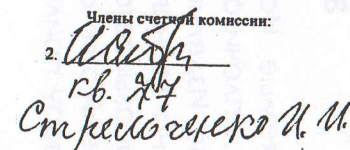 Члены счетной комиссии:
2.
кв. 77
Стрелоченко И. И.